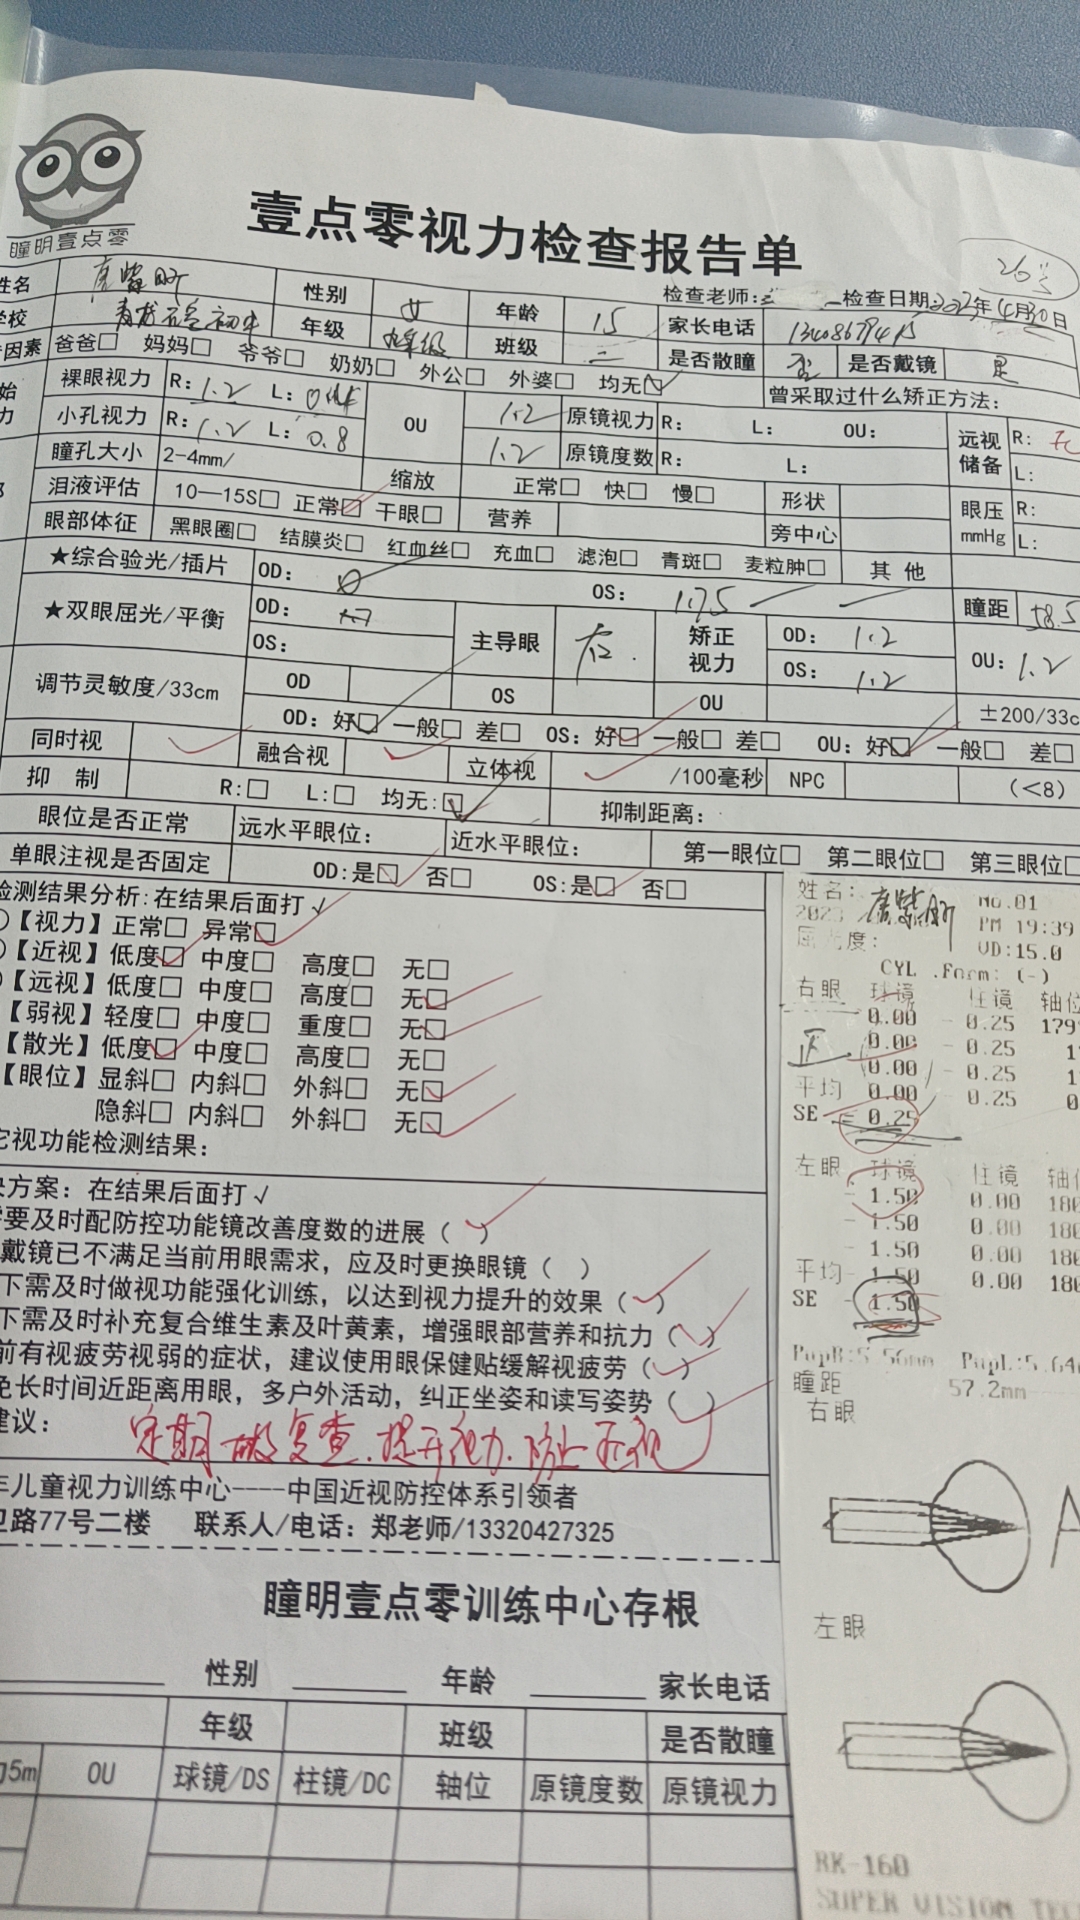 瞳明壹点零
壹点零视力检查报告单
26号
检查老师: 检查日期:2023年4月30日
姓名 性别 女 年龄 15 家长电话
学校 年级 九年级 班级 二 是否散瞳 否 是否戴镜 是
因素 爸爸□ 妈妈□ 爷爷□ 奶奶□ 外公□ 外婆□ 均无☑ 曾采取过什么矫正方法:
裸眼视力 R: 1.2 L: OU 1.2 原镜视力 R: L: OU: 远视储备 R: L:
小孔视力 R: 1.2 L: 0.8 1.2 原镜度数 R: L:
瞳孔大小 2-4mm/ 缩放 正常□ 快□ 慢□ 形状 眼压mmHg R: L:
泪液评估 10—15S□ 正常☑ 干眼□ 营养 旁中心
眼部体征 黑眼圈□ 结膜炎□ 红血丝□ 充血□ 滤泡□ 青斑□ 麦粒肿□ 其他
★综合验光/插片 OD: OS: 1.75 瞳距 58.5
★双眼屈光/平衡 OD: OS: 主导眼 右. 矫正视力 OD: 1.2 OS: 1.2 OU: 1.2
调节灵敏度/33cm OD OS OU ±200/33c
OD: 好☑ 一般□ 差□ OS: 好☑ 一般□ 差□ OU: 好☑ 一般□ 差□
同时视 ✓ 融合视 ✓ 立体视 ✓ /100毫秒 NPC (<8)
抑 制 R:□ L:□ 均无:☑ 抑制距离:
眼位是否正常 远水平眼位: 近水平眼位: 第一眼位□ 第二眼位□ 第三眼位□
单眼注视是否固定 OD:是☑ 否□ OS:是☑ 否□
检测结果分析:在结果后面打√
【视力】正常□ 异常☑
【近视】低度☑ 中度□ 高度□ 无□
【远视】低度□ 中度□ 高度□ 无☑
【弱视】轻度□ 中度□ 重度□ 无☑
【散光】低度☑ 中度□ 高度□ 无□
【眼位】显斜□ 内斜□ 外斜□ 无☑
隐斜□ 内斜□ 外斜□ 无☑
它视功能检测结果:
决方案: 在结果后面打√
需要及时配防控功能镜改善度数的进展(✓)
戴镜已不满足当前用眼需求, 应及时更换眼镜( )
下需及时做视功能强化训练, 以达到视力提升的效果(✓)
下需及时补充复合维生素及叶黄素, 增强眼部营养和抗力(✓)
前有视疲劳视弱的症状, 建议使用眼保健贴缓解视疲劳(✓)
免长时间近距离用眼, 多户外活动, 纠正坐姿和读写姿势(✓)
建议: 定期做复查.提升视力.防止近视
年儿童视力训练中心----中国近视防控体系引领者
卫路77号二楼 联系人/电话: 郑老师/13320427325
姓名: No.01
2023 PM 19:39
屈光度: VD:15.0
CYL .Form: (-)
右眼 球镜 柱镜 轴位
0.00 - 0.25 179
0.00 - 0.25 1
正 0.00 - 0.25 1
平均 0.00 - 0.25 0
SE - 0.25
左眼 球镜 柱镜 轴位
- 1.50 0.00 180
- 1.50 0.00 180
- 1.50 0.00 180
平均- 1.50 0.00 180
SE - 1.50
PupR:5.56mm PupL:5.64
瞳距 57.2mm
右眼
左眼
RK-160
SUPER VISION TEC
瞳明壹点零训练中心存根
性别 年龄 家长电话
年级 班级 是否散瞳
5m OU 球镜/DS 柱镜/DC 轴位 原镜度数 原镜视力